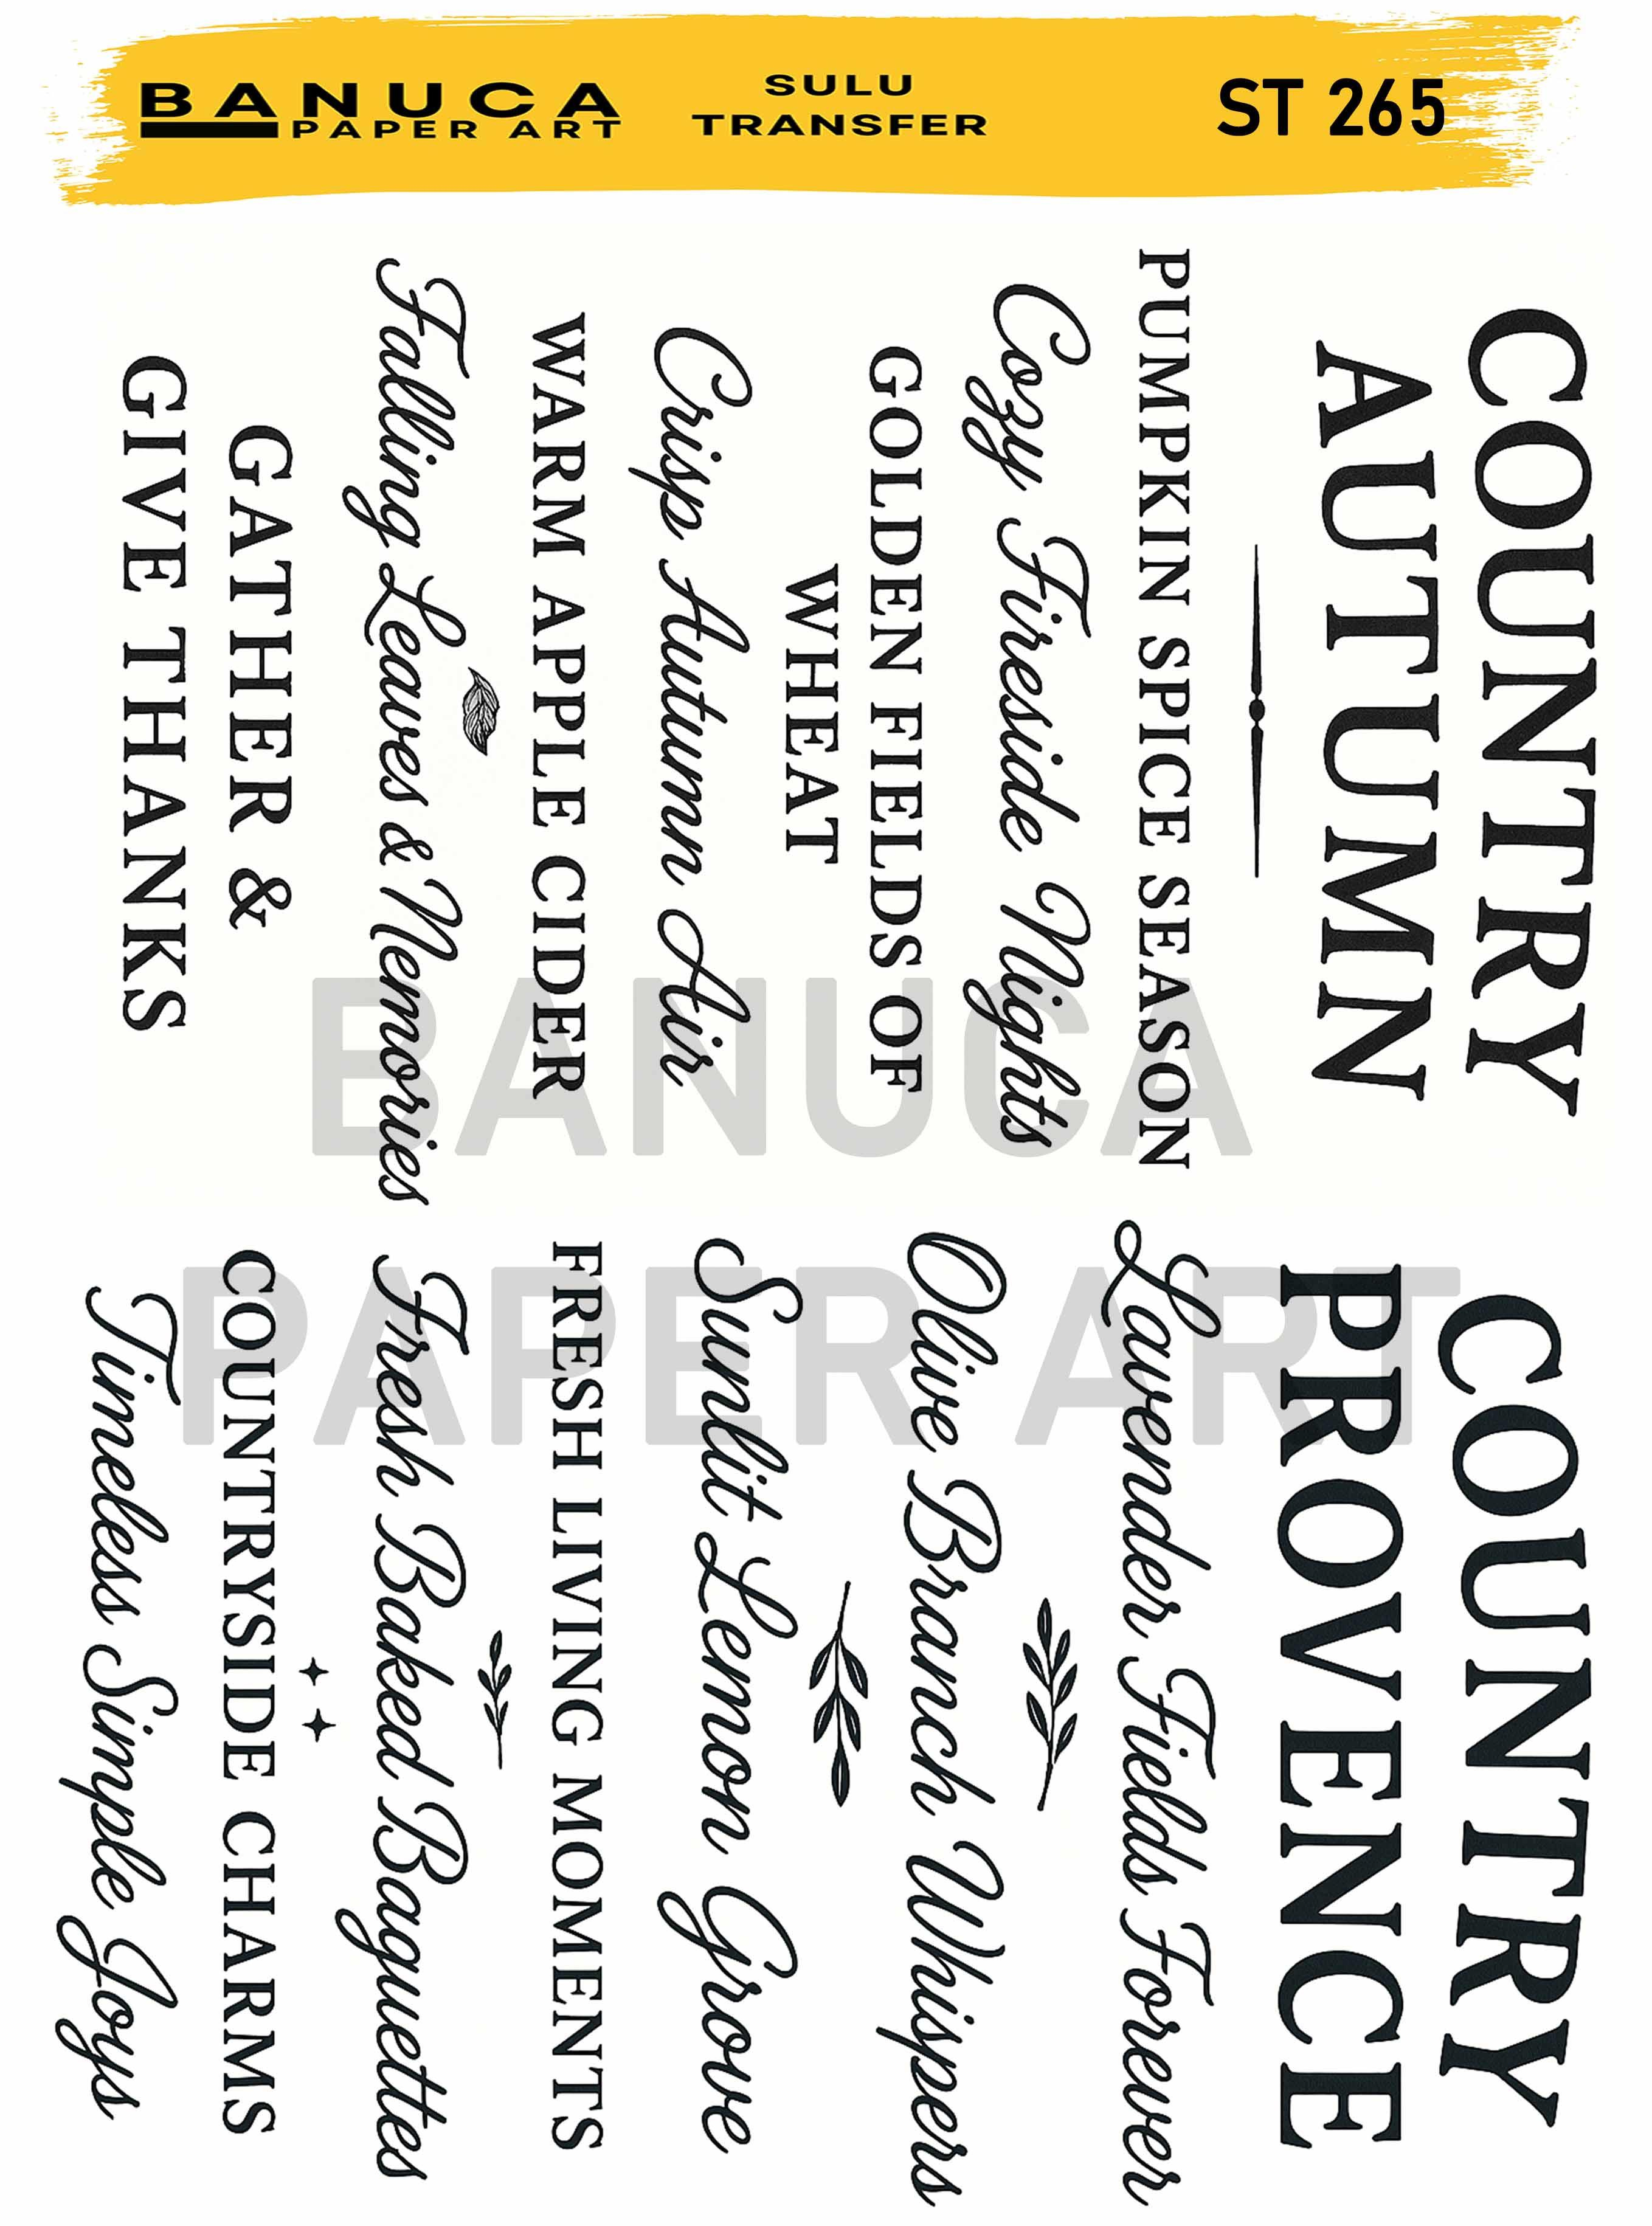 BANUCA
PAPER ART
SULU
TRANSFER
ST 265
COUNTRY
AUTUMN
PUMPKIN SPICE SEASON
Cozy Fireside Nights
GOLDEN FIELDS OF
WHEAT
Crisp Autumn Air
WARM APPLE CIDER
Falling Leaves & Memories
GATHER &
GIVE THANKS
COUNTRY
PROVENCE
Lavender Fields Forever
Olive Branch Whispers
Sunlit Lemon Grove
FRESH LIVING MOMENTS
Fresh Baked Baguettes
COUNTRYSIDE CHARMS
Timeless Simple Joys
BANUCA
PAPER ART